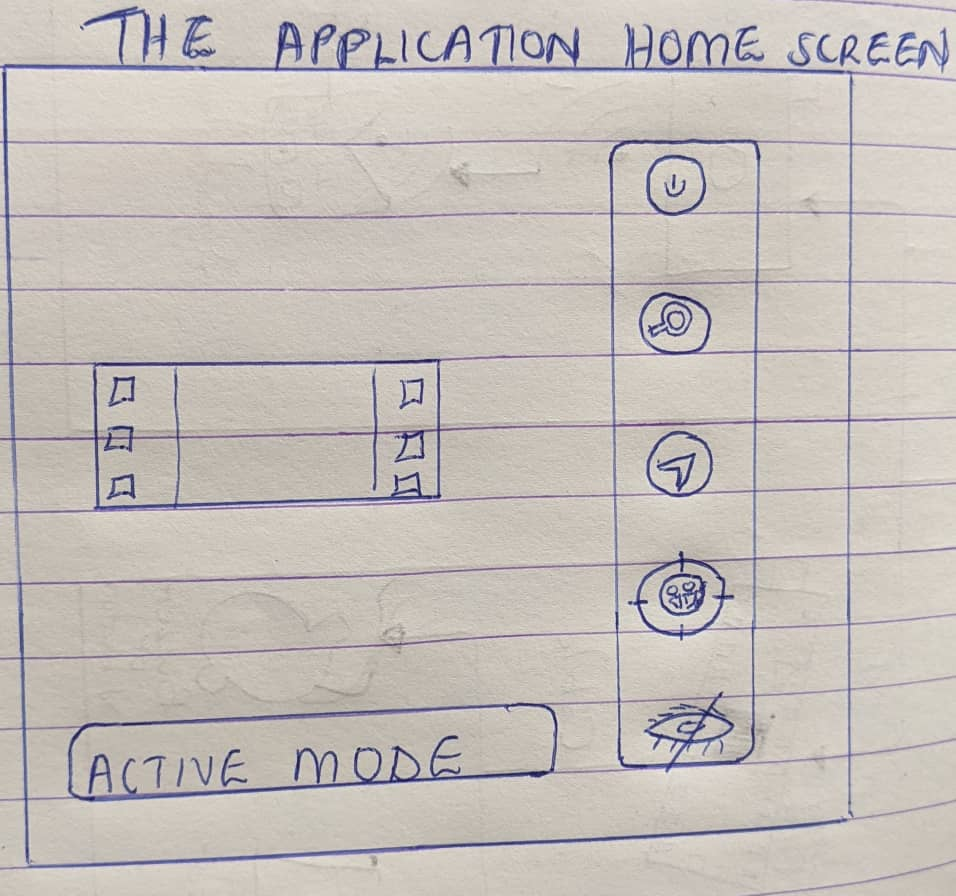 THE APPLICATION HOME SCREEN
ACTIVE MODE